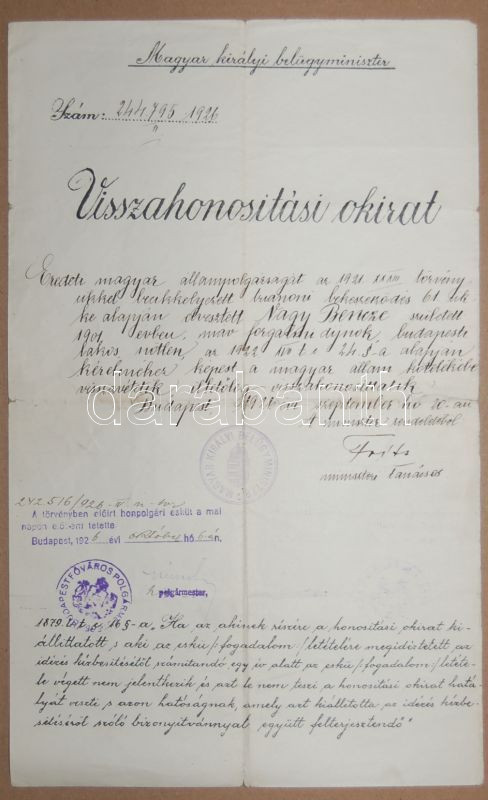 Magyar királyi belügyminiszter
Szám: 244.795 1926
Visszahonositási okirat
Eredeti magyar állampolgárságát az 1921 XXXIII törvény
czikkel becikkelyezett trianoni békeszerződés 61 cik
ke alapján elvesztett Nagy Bencze született
1901 évben, máv forgalmi budapesti
lakos nőtlen, az 1922 XVII t. c. 24. § a alapján
kérelméhez képest a magyar állam kötelékébe
visszahonosittatik
Budapest, 1926 évi szeptember hó 20.-án
A miniszter rendeletéből
miniszteri tanácsos
MAGYAR KIRÁLYI BELÜGYMINISZTER
darabanth
242516/926
A törvényben előirt honpolgári esküt a mai
napon előttem letette
Budapest, 1926 évi október hó 6-án.
BUDAPEST FŐVÁROS POLGÁRMESTERE
polgármester,
1879. L. t. c. 16 §-a. "Ha az akinek részére a honositási okirat ki-
állittatott s aki az eskü/fogadalom/letételére megidéztetett az
idézés kézbesitésétől számitandó egy év alatt az eskü/fogadalom/letéte-
le végett nem jelentkezik és azt le nem teszi a honositási okirat hatá-
lyát veszti s azon hatóságnak, amely azt kiállitotta, az idézés kézbe-
sitéséről szóló bizonyitvánnyal együtt felterjesztendő"